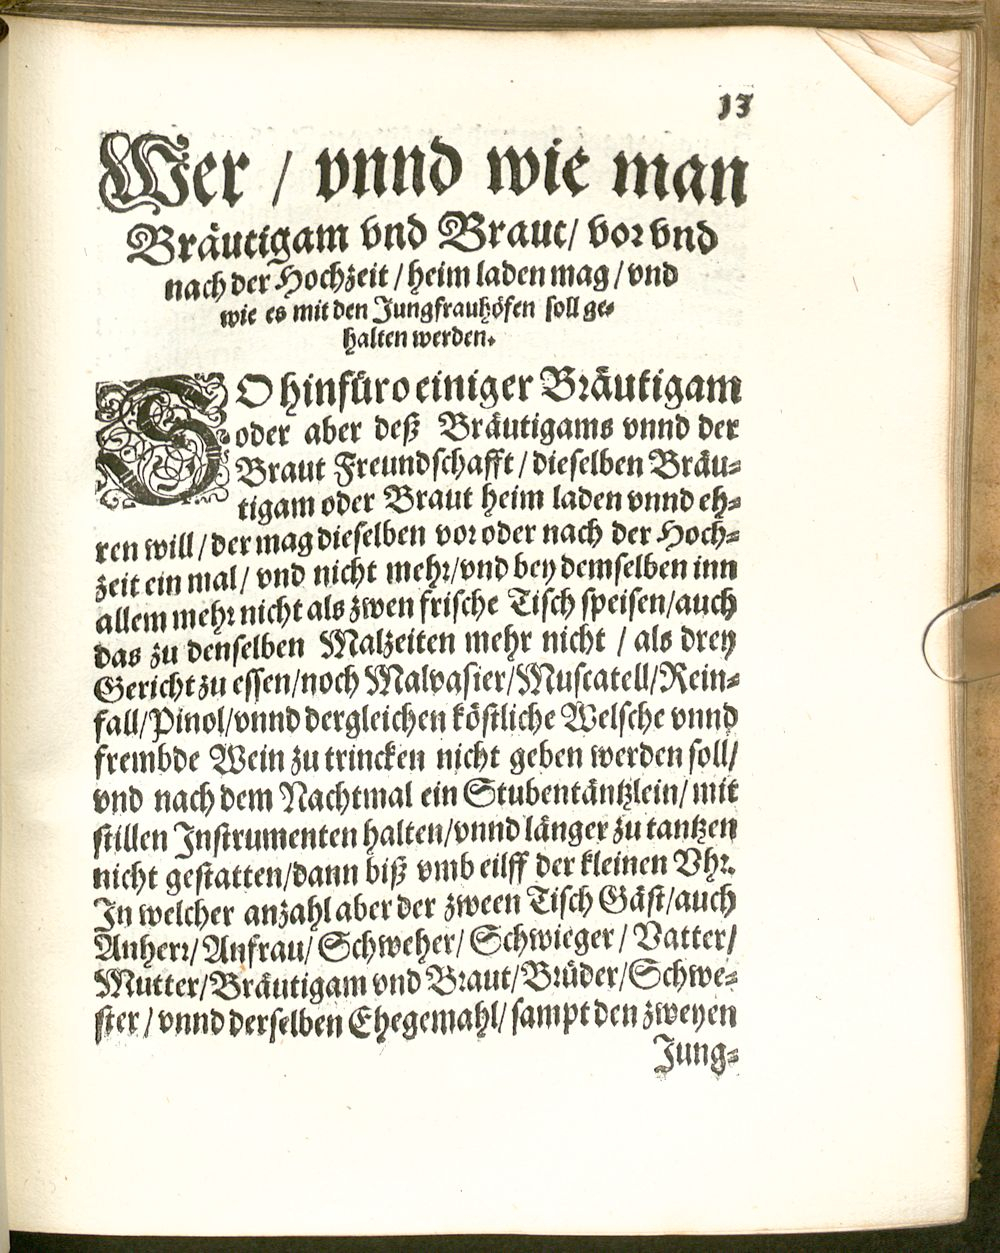 13
Wer / vnnd wie man
Bräutigam vnd Braut / vor vnd
nach der Hochzeit / heim laden mag / vnd
wie es mit den Jungfrauhöfen soll ge-
halten werden.
SO hinfüro einiger Bräutigam
oder aber deß Bräutigams vnnd der
Braut Freundschafft / dieselben Bräu-
tigam oder Braut heim laden vnnd eh-
ren will / der mag dieselben vor oder nach der Hoch-
zeit ein mal / vnd nicht mehr / vnd bey demselben inn
allem mehr nicht als zwen frische Tisch speisen / auch
das zu denselben Malzeiten mehr nicht / als drey
Gericht zu essen / noch Malvasier / Muscatell / Rein-
fall / Pinol / vnnd dergleichen köstliche Welsche vnnd
frembde Wein zu trincken nicht geben werden soll /
vnd nach dem Nachtmal ein Stubentäntzlein / mit
stillen Instrumenten halten / vnnd länger zu tantzen
nicht gestatten / dann biß vmb eilff der kleinen Vhr.
In welcher anzahl aber der zween Tisch Gäst / auch
Anherr / Anfrau / Schweher / Schwieger / Vatter /
Mutter / Bräutigam vnd Braut / Brüder / Schwe-
ster / vnnd derselben Ehegemahl / sampt den zweyen
Jung-